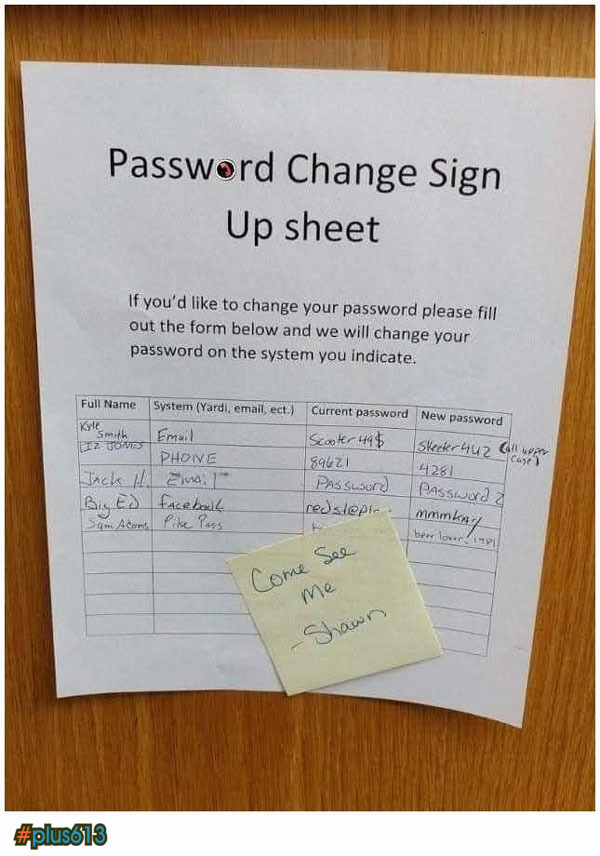 Password Change Sign
Up sheet
If you'd like to change your password please fill
out the form below and we will change your
password on the system you indicate.
Full Name System (Yardi, email, ect.) Current password New password
Kyle Smith Email Scooter49$ Skeeter4U2 (all upper case)
LIZ JONES PHONE 89621 4281
Jack H. Email PASSWORD PASSWORD 2
Big ED facebook mmmkay
Sam Adams Pike Pass beer lover
Come See
Me
-Shawn
#plus613